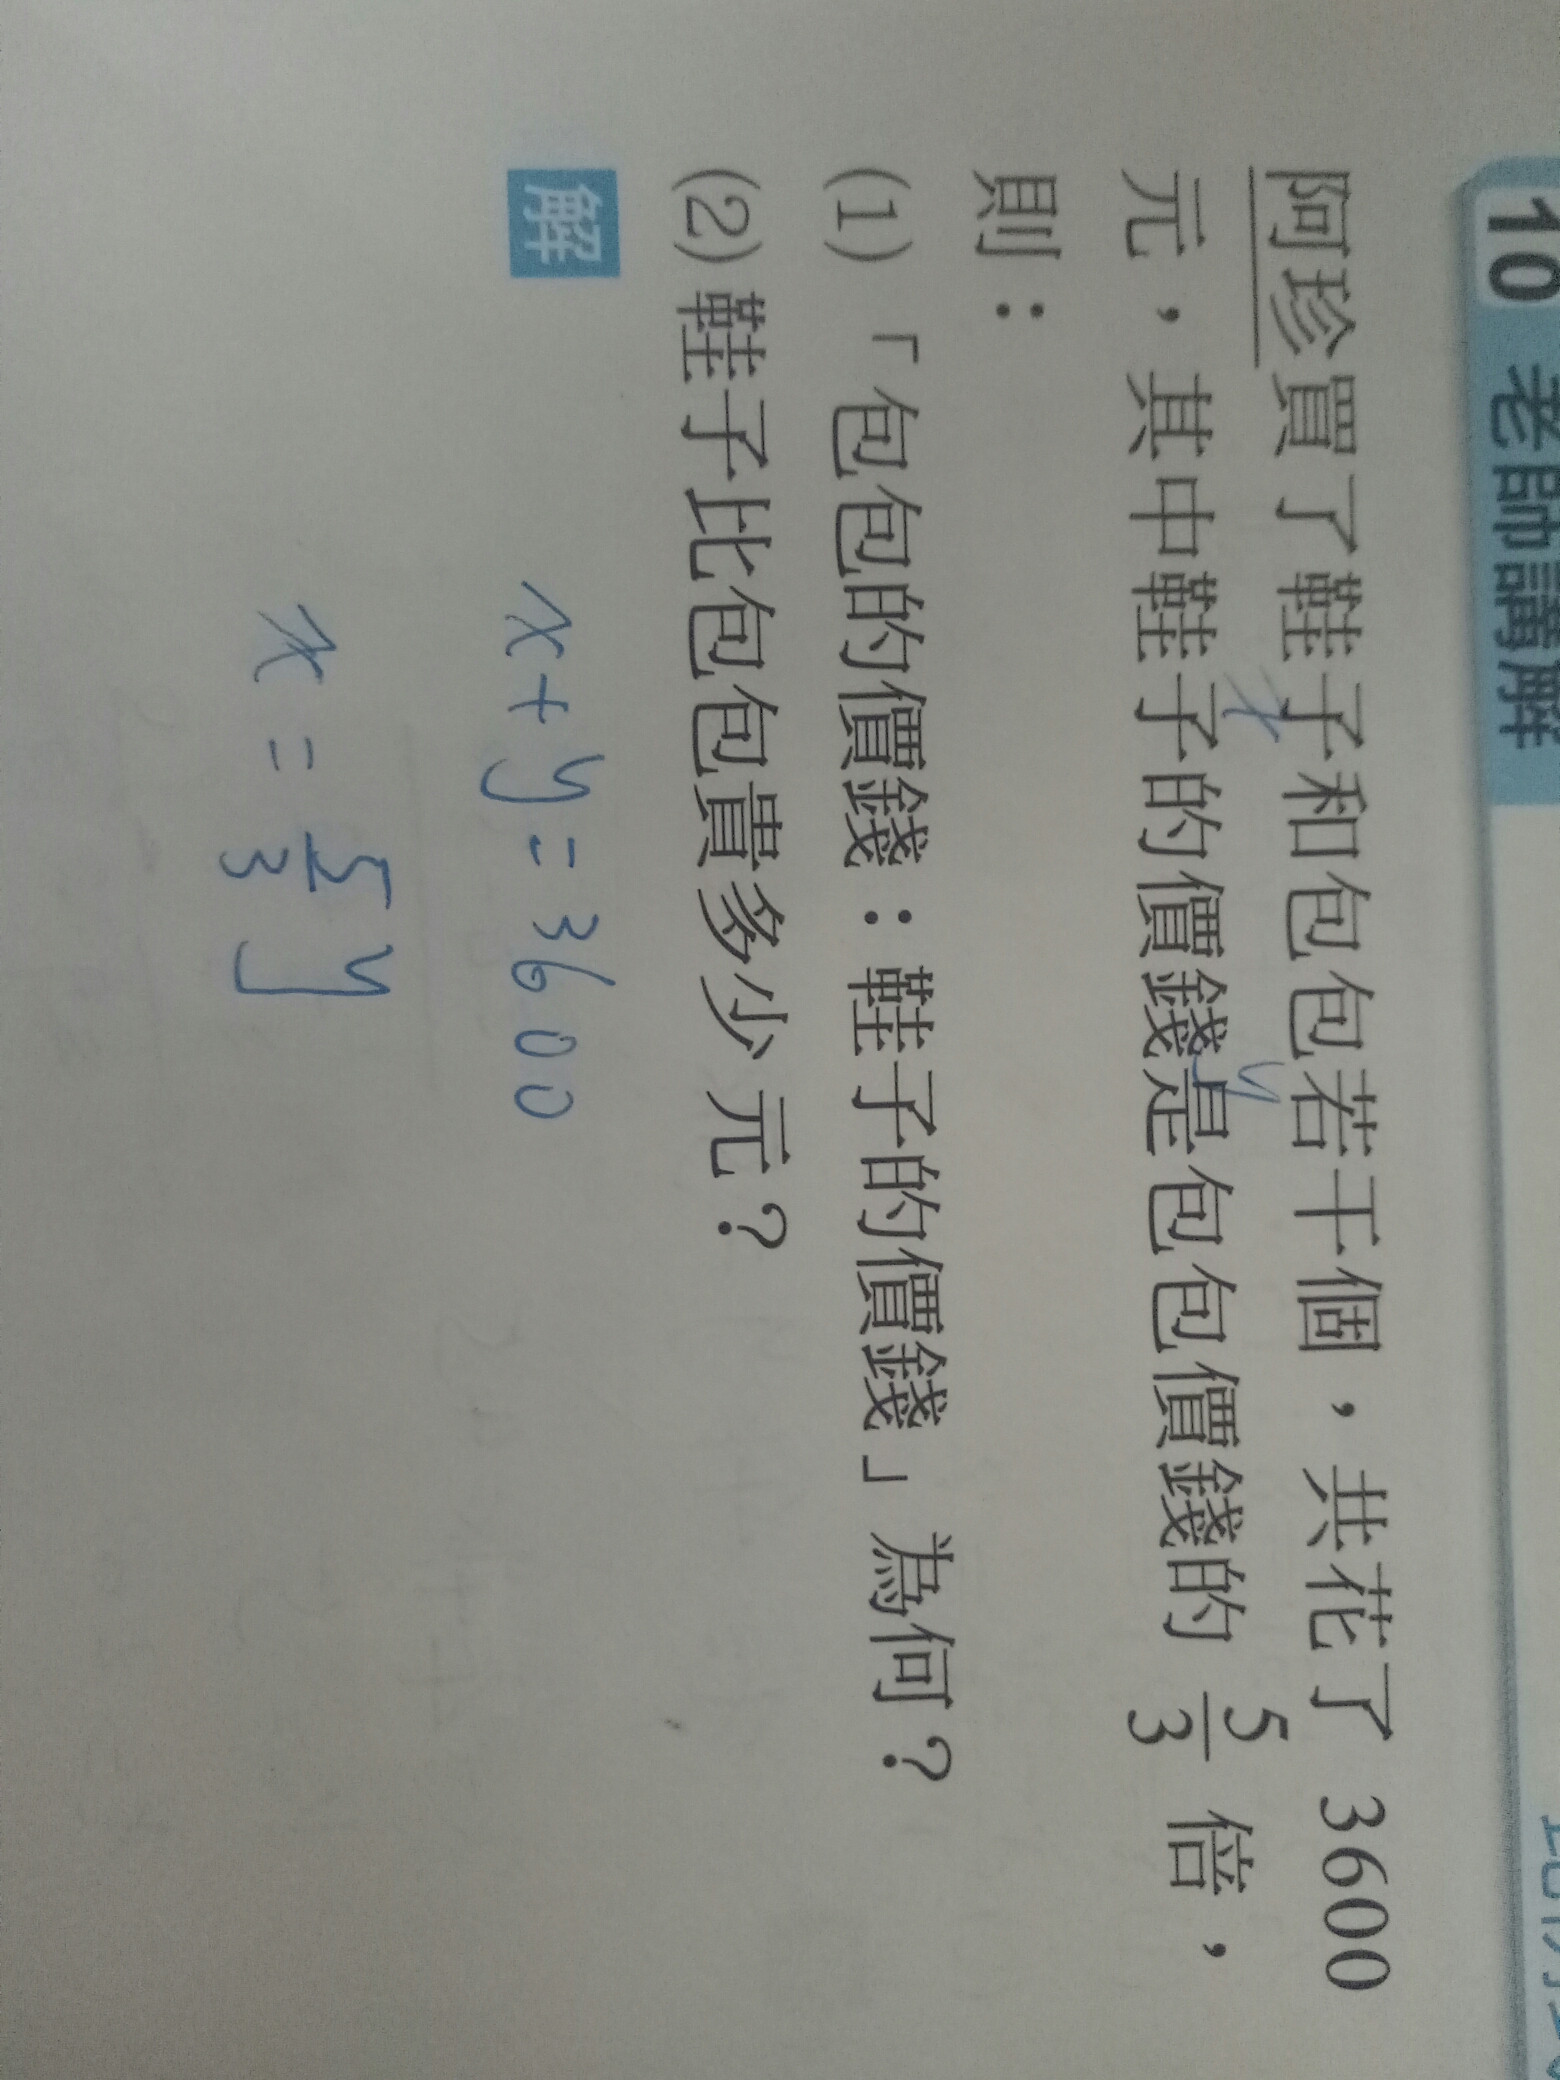 10 老師講解
阿珍買了鞋子和包包若干個，共花了 3600
x y
元，其中鞋子的價錢是包包價錢的 5/3 倍，
則：
(1)「包包的價錢：鞋子的價錢」為何？
(2)鞋子比包包貴多少元？
解
x + y = 3600
x = 5/3 y